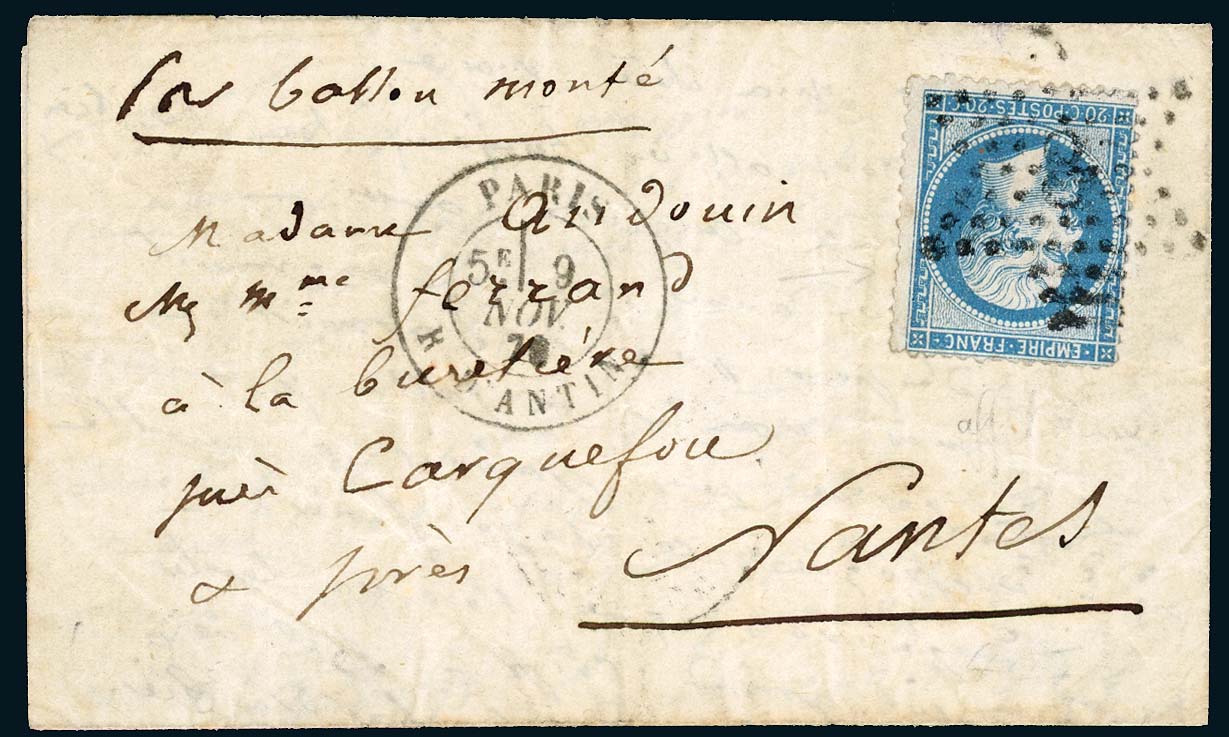 Par ballon monté
20 C·POSTES·20 C
EMPIRE·FRANC·
PARIS
5E 9
NOV.
70
R. D'ANTIN
Madame Audouin
Mme ferrand
à la buretière
près Carquefou
près Nantes